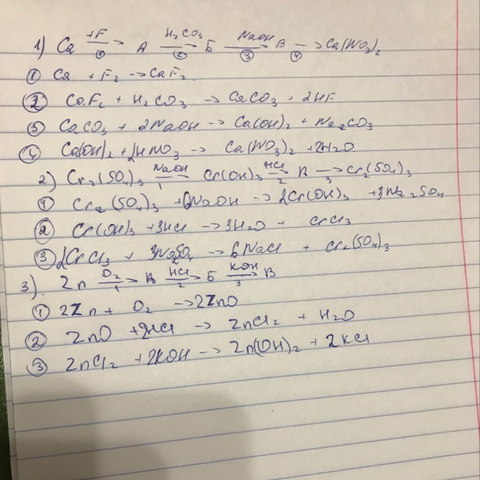 1) Ca +F → ① A H₂CO₃ → ② Б NaOH → ③ В → ④ Ca(NO₃)₂
① Ca + F₂ → CaF₂
② CaF₂ + H₂CO₃ → CaCO₃ + 2HF
③ CaCO₃ + 2NaOH → Ca(OH)₂ + Na₂CO₃
④ Ca(OH)₂ + 2HNO₃ → Ca(NO₃)₂ + 2H₂O
2) Cr₂(SO₄)₃ NaOH → 1 Cr(OH)₃ HCl → 2 В → 3 Cr₂(SO₄)₃
① Cr₂(SO₄)₃ + 6NaOH → 2Cr(OH)₃ + 3Na₂SO₄
② Cr(OH)₃ + 3HCl → 3H₂O + CrCl₃
③ 2CrCl₃ + 3Na₂SO₄ → 6NaCl + Cr₂(SO₄)₃
3). Zn O₂ → 1 В HCl → 2 Б KOH → 3 В
① 2Zn + O₂ → 2ZnO
② ZnO + 2HCl → ZnCl₂ + H₂O
③ ZnCl₂ + 2KOH → Zn(OH)₂ + 2KCl